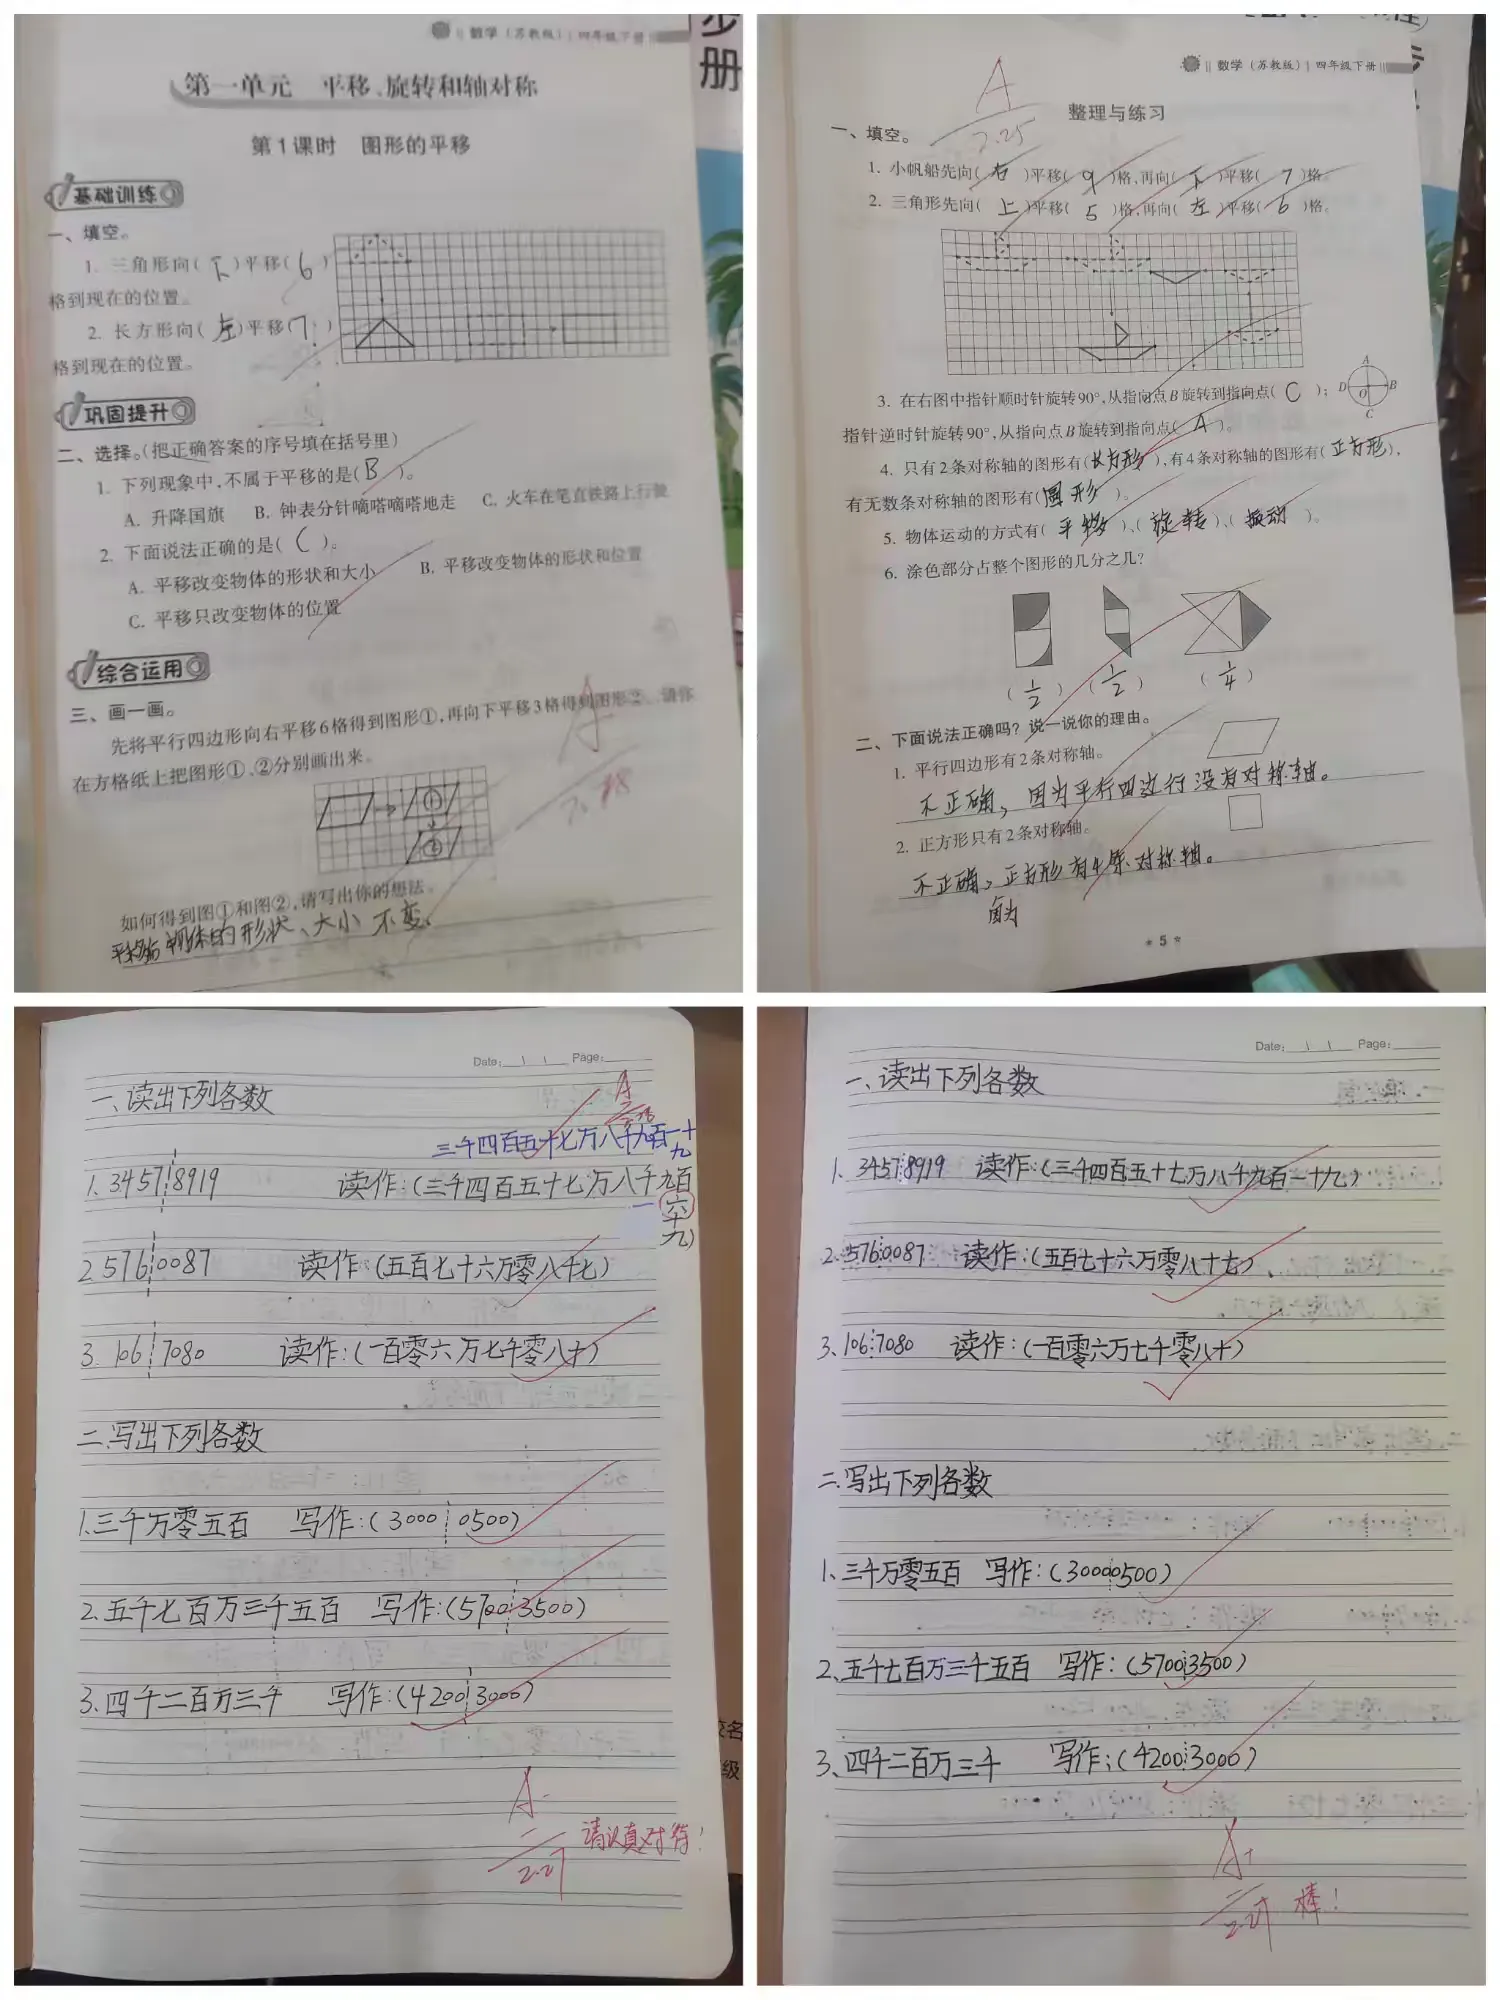 数学（苏教版）| 四年级下册
步
册
第一单元 平移、旋转和轴对称
第1课时 图形的平移
基础训练
一、填空。
1. 三角形向(下)平移(6)
格到现在的位置。
2. 长方形向(左)平移(7)
格到现在的位置。
巩固提升
二、选择。(把正确答案的序号填在括号里)
1. 下列现象中,不属于平移的是(B)。
A. 升降国旗 B. 钟表分针嘀嗒嘀嗒地走 C. 火车在笔直铁路上行驶
2. 下面说法正确的是(C)。
A. 平移改变物体的形状和大小 B. 平移改变物体的形状和位置
C. 平移只改变物体的位置
综合运用
三、画一画。
先将平行四边形向右平移6格得到图形①,再向下平移3格得到图形②。请你
在方格纸上把图形①、②分别画出来。
① 
②
A
如何得到图①和图②,请写出你的想法。
物体的形状、大小不变。
数学（苏教版）| 四年级下册
A
2.25
整理与练习
一、填空。
1. 小帆船先向(右)平移(9)格,再向(下)平移(7)格。
2. 三角形先向(上)平移(5)格,再向(左)平移(6)格。
3. 在右图中指针顺时针旋转90°,从指向点B旋转到指向点(C);
A
D O B
C
指针逆时针旋转90°,从指向点B旋转到指向点(A)。
4. 只有2条对称轴的图形有(长方形),有4条对称轴的图形有(正方形),
有无数条对称轴的图形有(圆形)。
5. 物体运动的方式有(平移)、(旋转)、(振动)。
6. 涂色部分占整个图形的几分之几?
(1/2) (1/2) (1/4)
二、下面说法正确吗? 说一说你的理由。
1. 平行四边形有2条对称轴。
不正确,因为平行四边行没有对称轴。
2. 正方形只有2条对称轴。
不正确,正方形有4条对称轴。
因为
5
Date: Page:
一、读出下列各数
A
三千四百五十七万八千九百一十
九
1. 34578919 读作:(三千四百五十七万八千九百
一六十
九)
2 5760087 读作:(五百七十六万零八十七)
3. 1067080 读作:(一百零六万七千零八十)
二.写出下列各数
1.三千万零五百 写作:(30000500)
2.五千七百万三千五百 写作:(57003500)
3.四千二百万三千 写作:(42003000)
A-
2.27
请认真对待!
名
级
Date: Page:
一、读出下列各数
1. 34578919 读作:(三千四百五十七万八千九百一十九)
2. 5760087 读作:(五百七十六万零八十七)
3、1067080 读作:(一百零六万七千零八十)
二.写出下列各数
1、三千万零五百 写作:(30000500)
2、五千七百万三千五百 写作:(57003500)
3、四千二百万三千 写作:(42003000)
A+
2.27
棒!